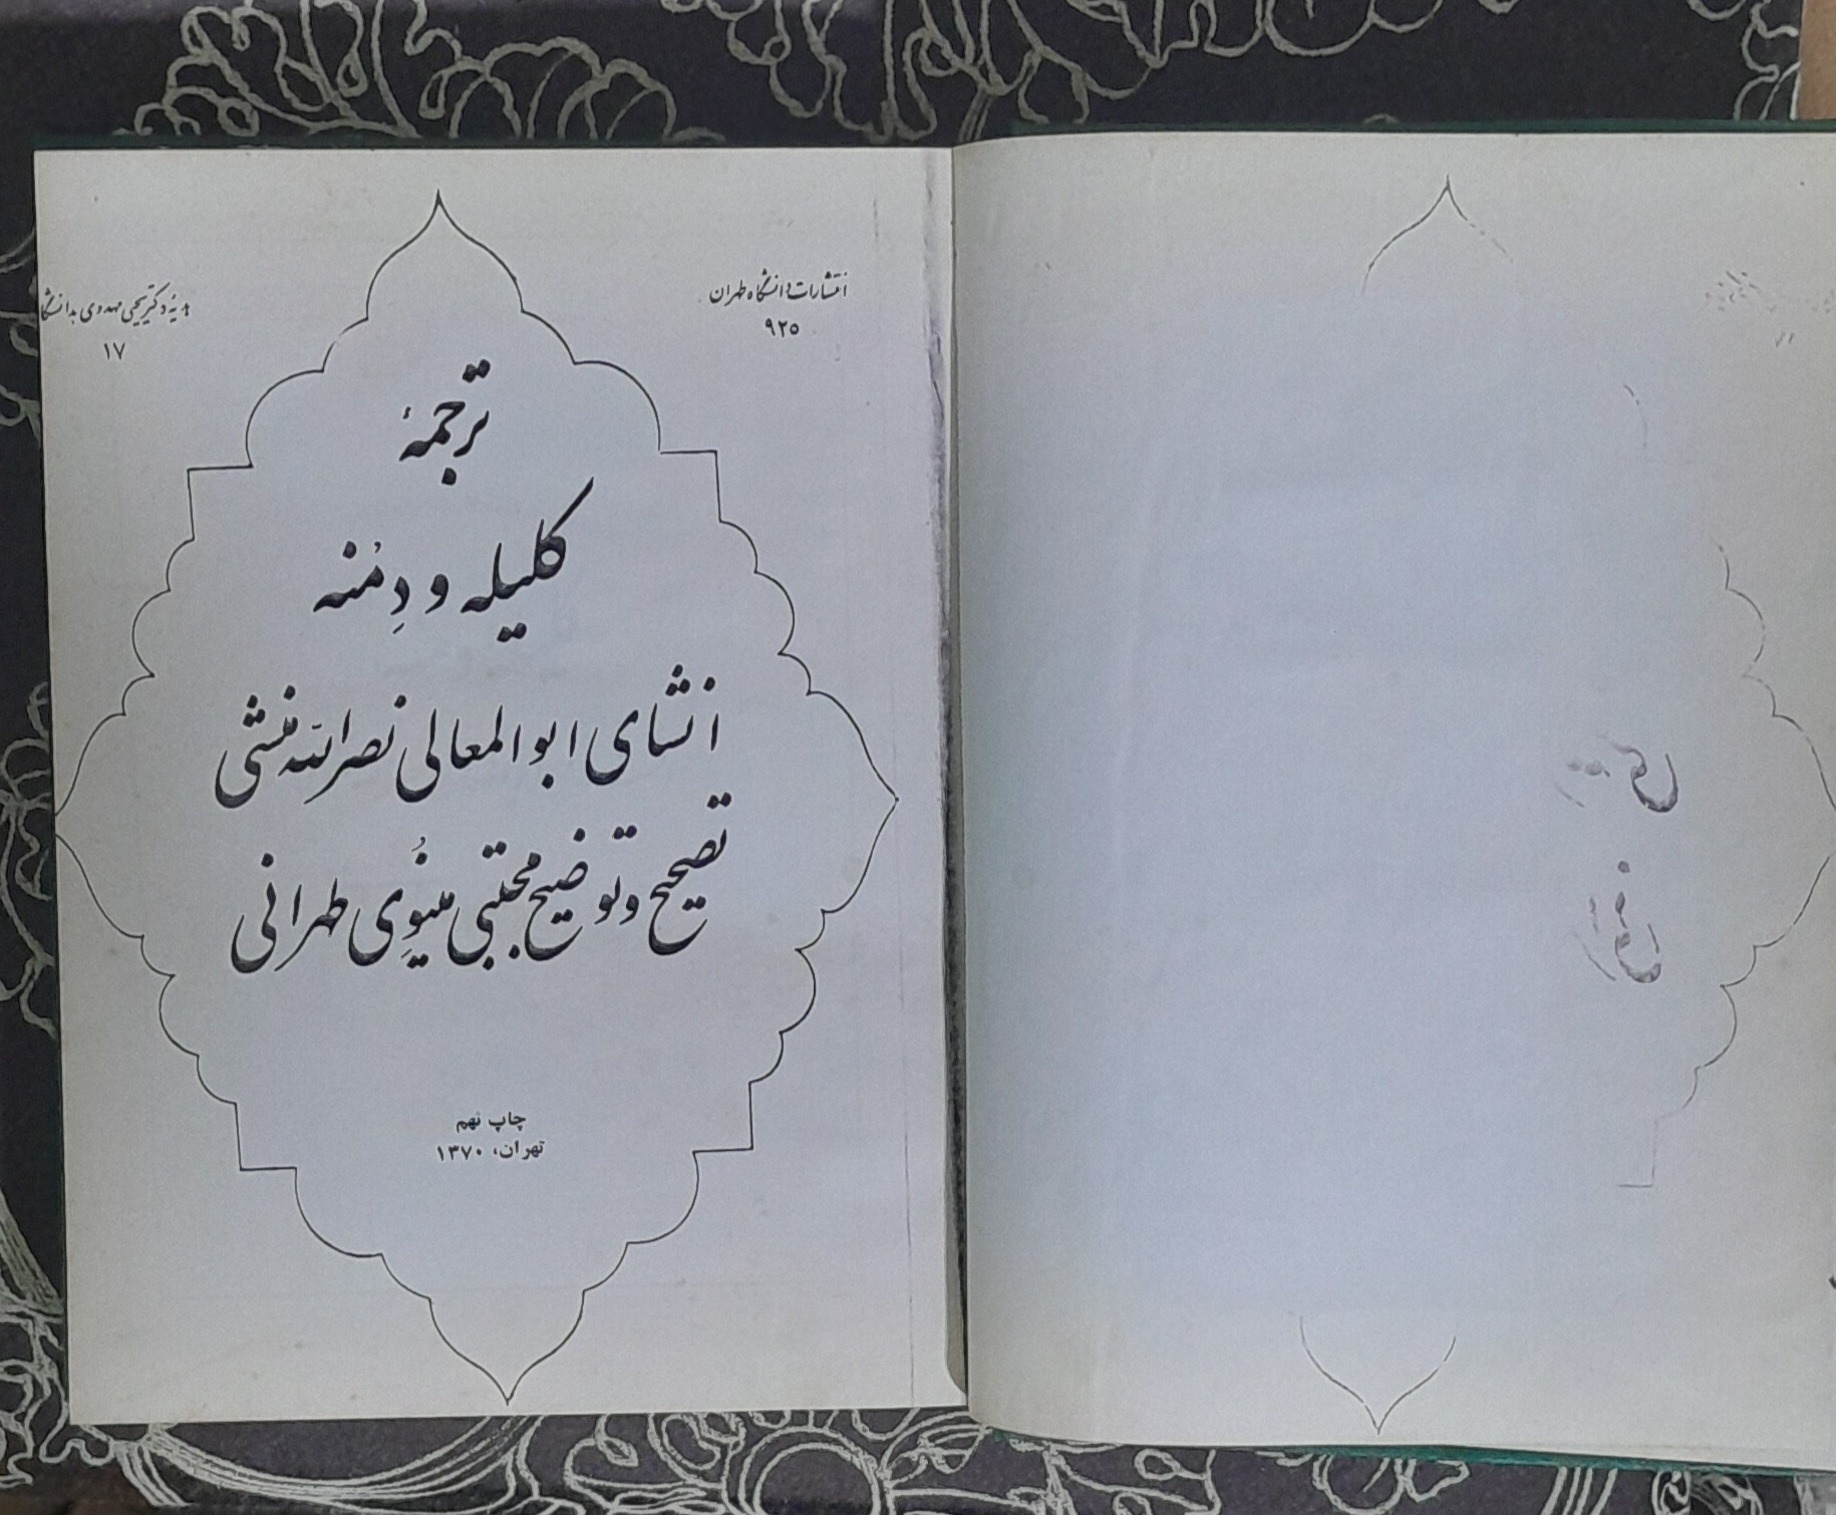 انتشارات دانشگاه طهران
۹۲۵
هدیهٔ دکتر یحیی مهدوی بدانشگاه
۱۷
ترجمهٔ
کلیله و دِمْنه
انشای ابوالمعالی نصرالله منشی
تصحیح و توضیح مجتبی مینُوِی طهرانی
چاپ نهم
تهران، ۱۳۷۰